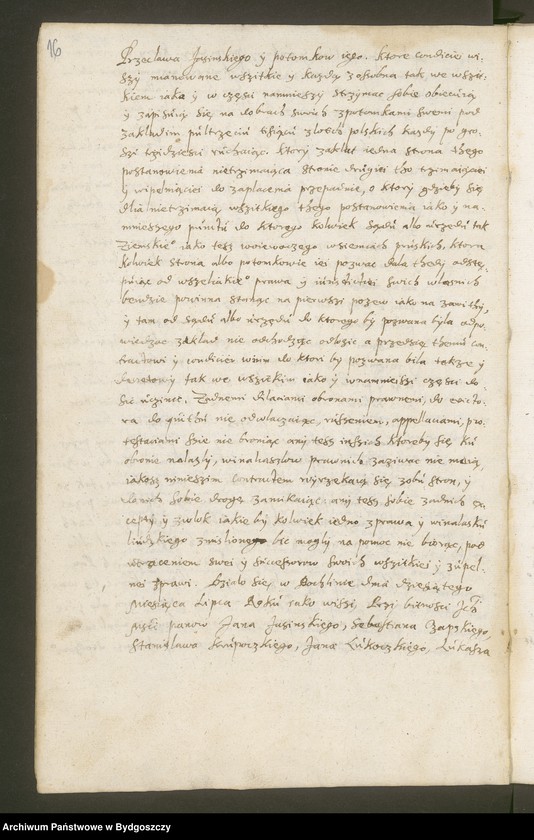 16
Przecława Jasinskiego y potomkow iego. ktore condicie wi-
szy mianowane wszitkie y kazdą zosobna tak we wszit-
kiem iako y w częsci namnieszy strzymac sobie obiecuią
y zapisuią się na dobrach swoich zpotomkami swemi pod
zakładem pultrzeciu tysięcy złotch polskich kazdy po gro-
szi trzidziesci rachuiąc. ktory zakład iedna strona thego
postanowienia nietrzimaiąca stronie drugiei tho trzimaiącei
y wipełniącei do zapłacenia przepadnie, o ktory gdzieby się
dla nietrzimaią wszitkiego thego postanowienia iako y na-
mnieszego punctu do ktorego kolwiek sądu albo urzędu tak
Ziemskieo iako tesz woiewoczego wziemiach pruskich, ktora
kolwiek strona albo potomkowie iei pozwac dała thedy odstę-
puiąc od wszelakieo prawa y iurisdictiei swich własnich
bendzie powinna stanąc na pierwszi pozew iako na zawithy,
y tam od sądu albo urzędu do ktorego by pozwana była odpo-
wiedzac zakład nie odchodząc odłozic a przedsię themu con-
tractowi y condicie wszim do ktori by pozwana biła także y
dwretowy tak we wszitkim iako y wnamnieisci częsci do-
sic uczinic. Zadnemi dilaciami obronami prawnemi, do evicto-
ra do quitku nie odwłaczaiąc, ruszeniem, appellaciami, pro-
testaciami sie nie broniąc ani tesz inszich ktoreby się ku
obronie nalazly, winalaszkow prawnich zaziwac nie maią,
iakosz ninieszim contractem wyrzekaią się zobu stron, y
do nich sobie drogę zamikaiąc any tesz sobie zadnich ex-
cepty y zwłok iakie by kolwiek iedno zprawa y winalasku
liudzkiego zmislionego bić mogły na pomoc nie biorąc, pod
straceniem swei y successorow swoich wszitkiei y zupeł-
nei sprawi. Działo się, w Bochlinie dnia dziesiątego
miesiąca Lipca Roku iako wiszi, Przi bitnosci Ich
Mści panow Jana Jasinskiego, Sebastiana Zapskiego,
Stanisława Krupoczkiego, Jana Lukoczkiego, Lukasza
Archiwum Państwowe w Bydgoszczy